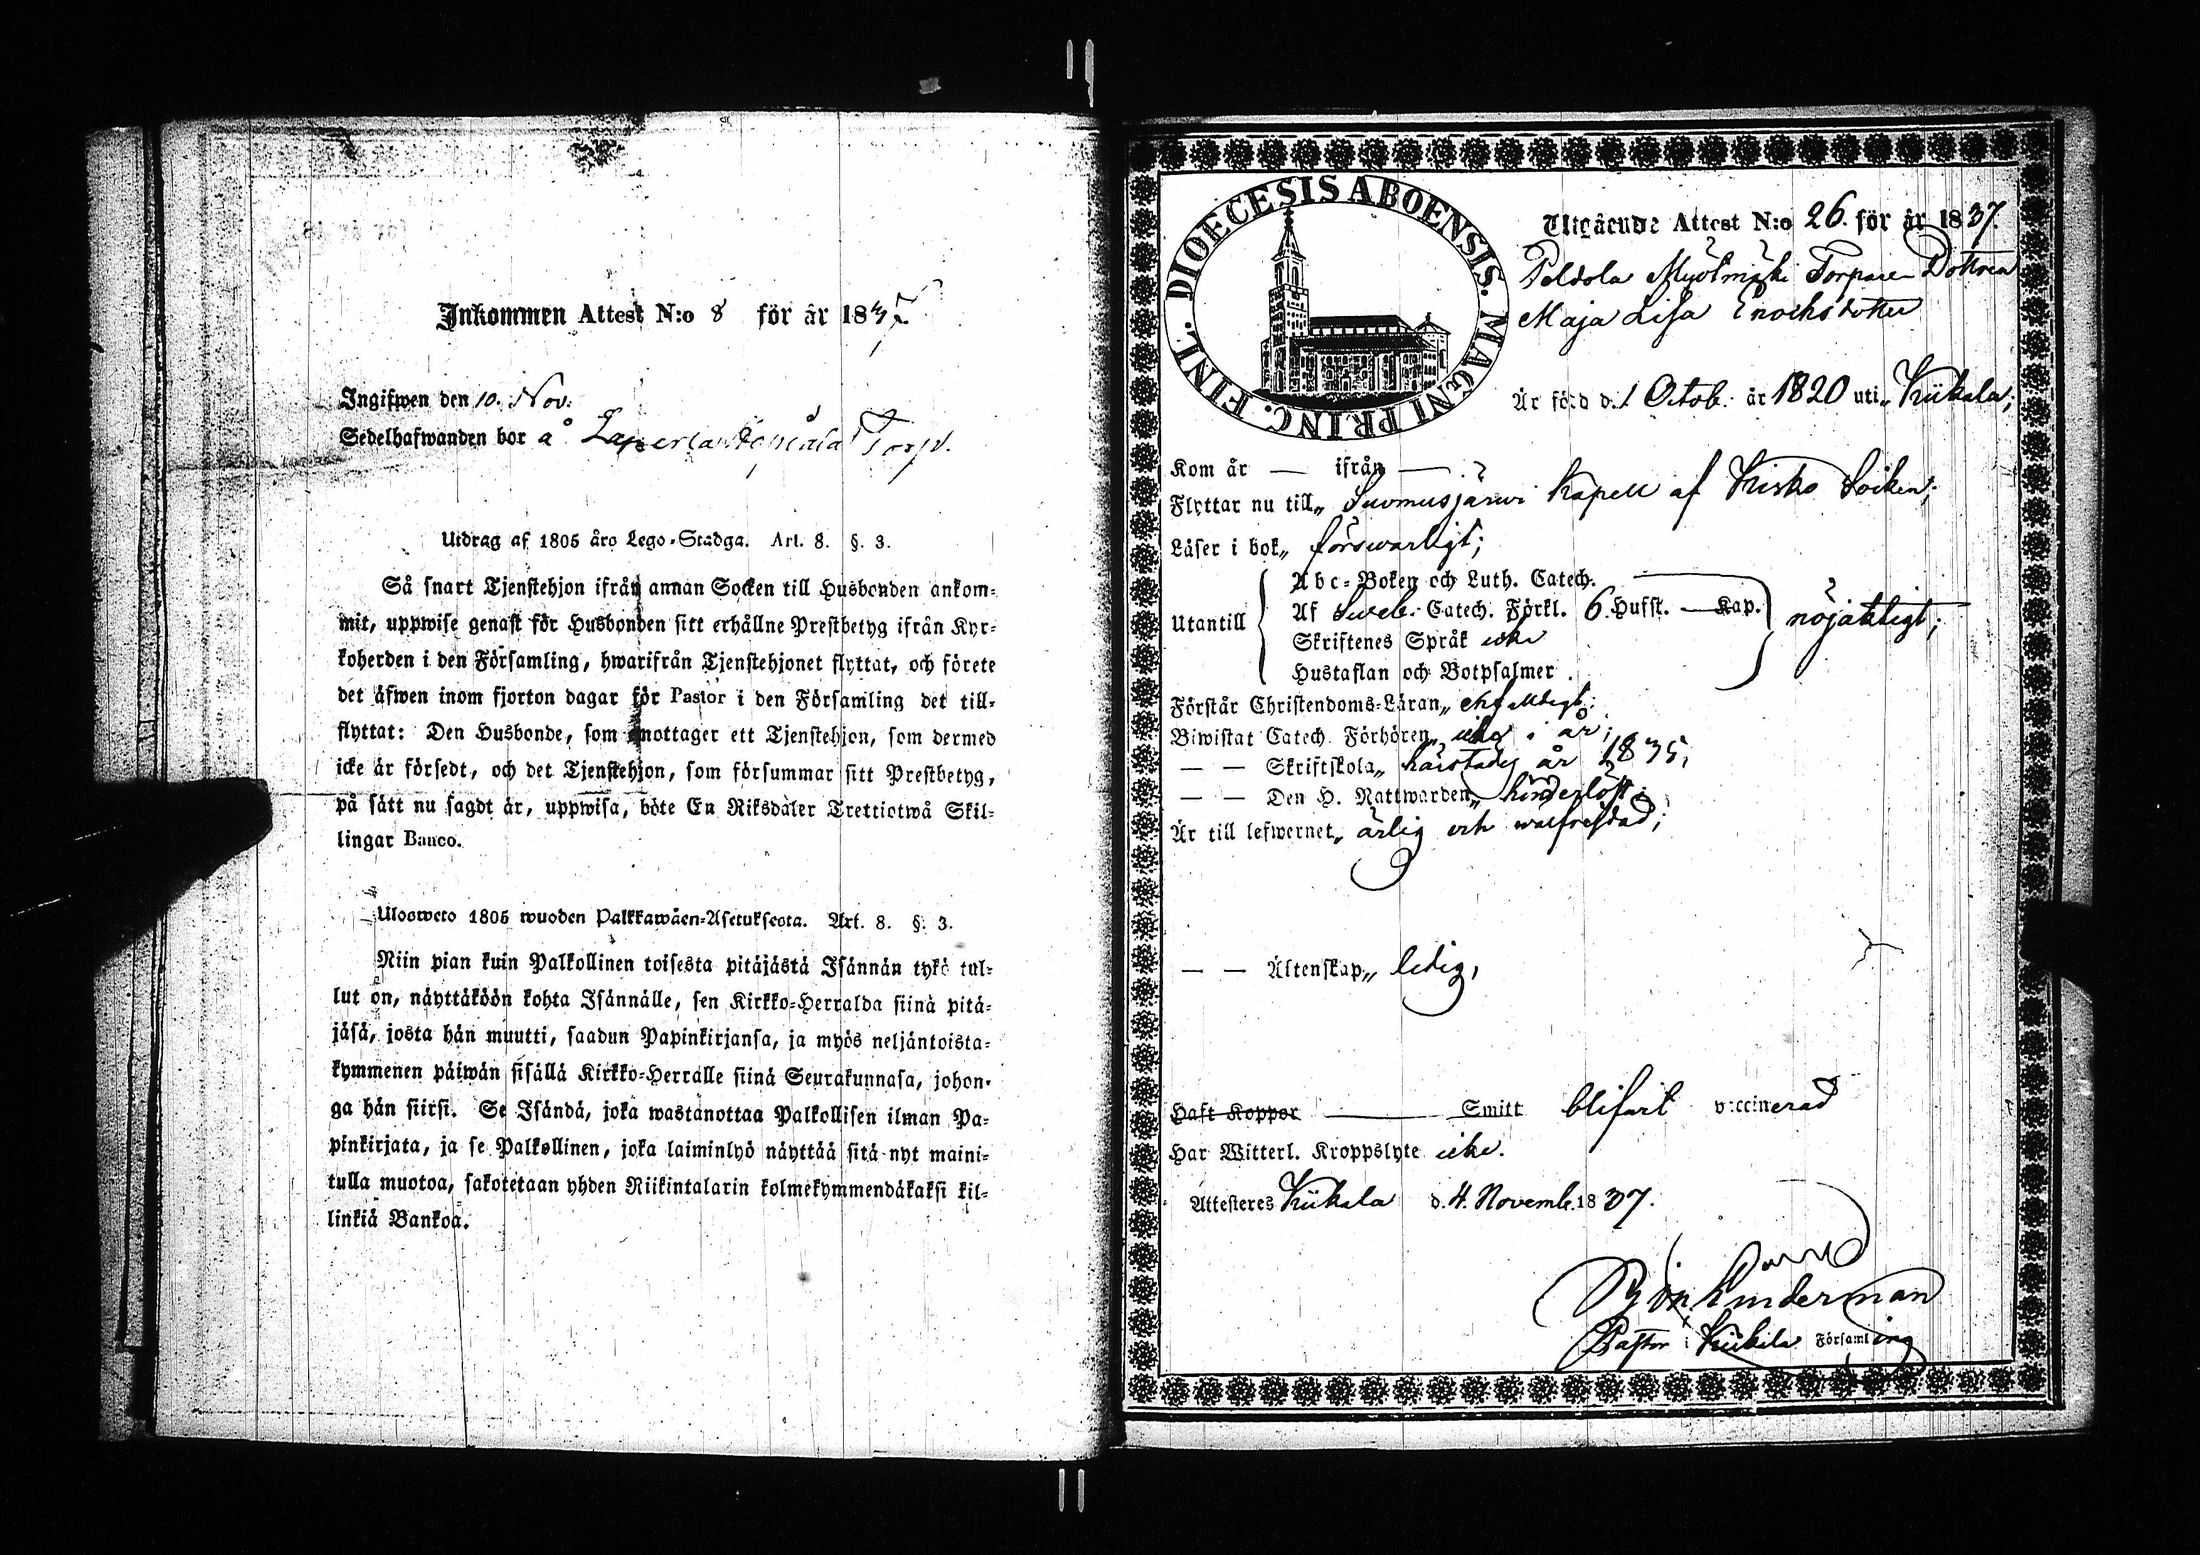 Inkommen Attest N:o 8 för år 1837
Ingifwen den 10. Nov.
Sedelhafwanden bor å Torp.
Utdrag af 1805 års Lego-Stadga. Art. 8. §. 3.
Så snart Tjenstehjon ifrån annan Socken till Husbonden ankom-
mit, uppwise genast för Husbonden sitt erhållne Prestbetyg ifrån Kyr-
koherden i den Församling, hwarifrån Tjenstehjonet flyttat, och förete
det äfwen inom fjorton dagar för Pastor i den Församling det till-
flyttat: Den Husbonde, som emottager ett Tjenstehjon, som dermed
icke är försedt, och det Tjenstehjon, som försummar sitt Prestbetyg,
på sätt nu sagdt är, uppwisa, böte En Riksdaler Trettiotwå Skil-
lingar Banco.
Ulosweto 1805 wuoden Palkkawäen-Asetuksesta. Art. 8. §. 3.
Niin pian kuin Palkollinen toisesta pitäjästä Isännän tykö tul-
lut on, näyttäköön kohta Isännälle, sen Kirkko-Herralda siinä pitä-
jäsä, josta hän muutti, saadun Papinkirjansa, ja myös neljäntoista-
kymmenen päiwän sisällä Kirkko-Herralle siinä Seurakunnasa, johon-
ga hän siirsi. Se Isändä, joka wastanottaa Palkollisen ilman Pa-
pinkirjata, ja se Palkollinen, joka laiminlyö näyttää sitä nyt maini-
tulla muotoa, sakotetaan yhden Riikintalarin kolmekymmendäkaksi kil-
linkiä Bankoa.
DIOECESIS ABOENSIS. MAGNI PRINC. FINL.
Utgående Attest N:o 26. för år 1837.
Poldola Myölmäki Torpare Dottren
Maja Lisa Enochsdotter
Är född d. 1 Octob. år 1820 uti Kiikala;
Kom år — ifrån —
Flyttar nu till Suomusjärwi Kapell af Kisko Socken;
Läser i bok förswarligt;
Utantill
Abc-Boken och Luth. Catech.
Af Sveb. Catech. Förkl. 6. Hufst. — Kap.
Skriftenes Språk icke
Hustaflan och Botpsalmer
nöjaktigt;
Förstår Christendoms-Läran enfaldigt;
Biwistat Catech. Förhören icke i år;
— — Skriftskola härstädes år 1835,
— — Den H. Nattwarden hinderlöst;
Är till lefwernet ärlig och wälfrejdad;
— — Äktenskap ledig,
Haft Koppor Smitt blifwit vaccinerad
Har Witterl. Kroppslyte icke.
Attesteres Kiikala d. 4. Novemb. 1837.
Linderman
Pastor i Kiikala Församling